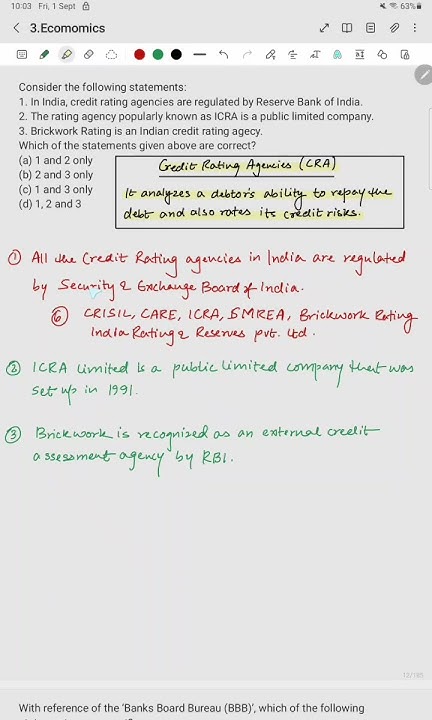 10:03 Fri, 1 Sept
63%
3.Ecomomics
Consider the following statements:
1. In India, credit rating agencies are regulated by Reserve Bank of India.
2. The rating agency popularly known as ICRA is a public limited company.
3. Brickwork Rating is an Indian credit rating agecy.
Which of the statements given above are correct?
(a) 1 and 2 only
(b) 2 and 3 only
(c) 1 and 3 only
(d) 1, 2 and 3
Credit Rating Agencies (CRA)
It analyzes a debtor's ability to repay the
debt and also rates its credit risks.
① All the Credit Rating agencies in India are regulated
by Security & Exchange Board of India.
⑥ CRISIL, CARE, ICRA, SMREA, Brickwork Rating
India Rating & Reserves pvt. Ltd.
② ICRA Limited is a public limited company that was
set up in 1991.
③ Brickwork is recognised as an external credit
assessment agency by RBI.
12/185
With reference of the 'Banks Board Bureau (BBB)', which of the following